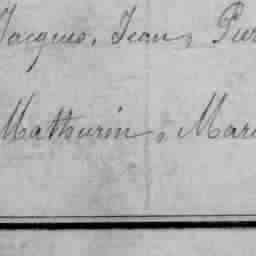 Jacques, Jean, Pier
Mathurin, Mari